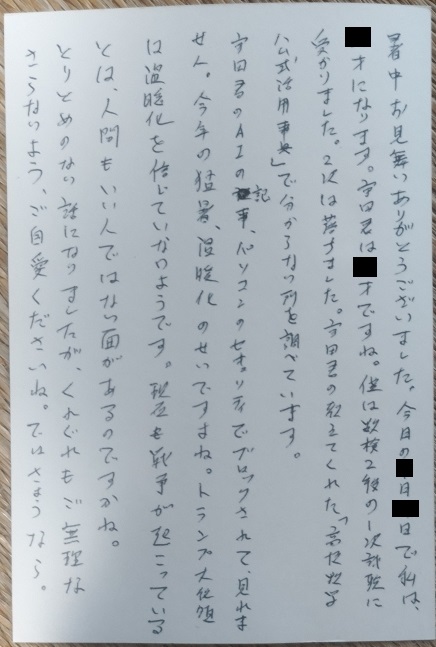 暑中お見舞いありがとうございました。今日の月日で私は、
才になります。宇田君は才ですね。僕は数検2級の1次試験に
受かりました。2次は落ちました。宇田君の教えてくれた「高校数学
公式活用事典」で分からない所を調べています。
宇田君のAIの記事、パソコンのセキュリティでブロックされて、見れま
せん。今年の猛暑、温暖化のせいですよね。トランプ大統領
は温暖化を信じていないようです。現在も戦争が起こっている
ことは、人間もいい人ではない面があるのですかね。
とりとめのない話になりましたが、くれぐれもご無理な
さらないよう、ご自愛くださいね。ではさようなら。